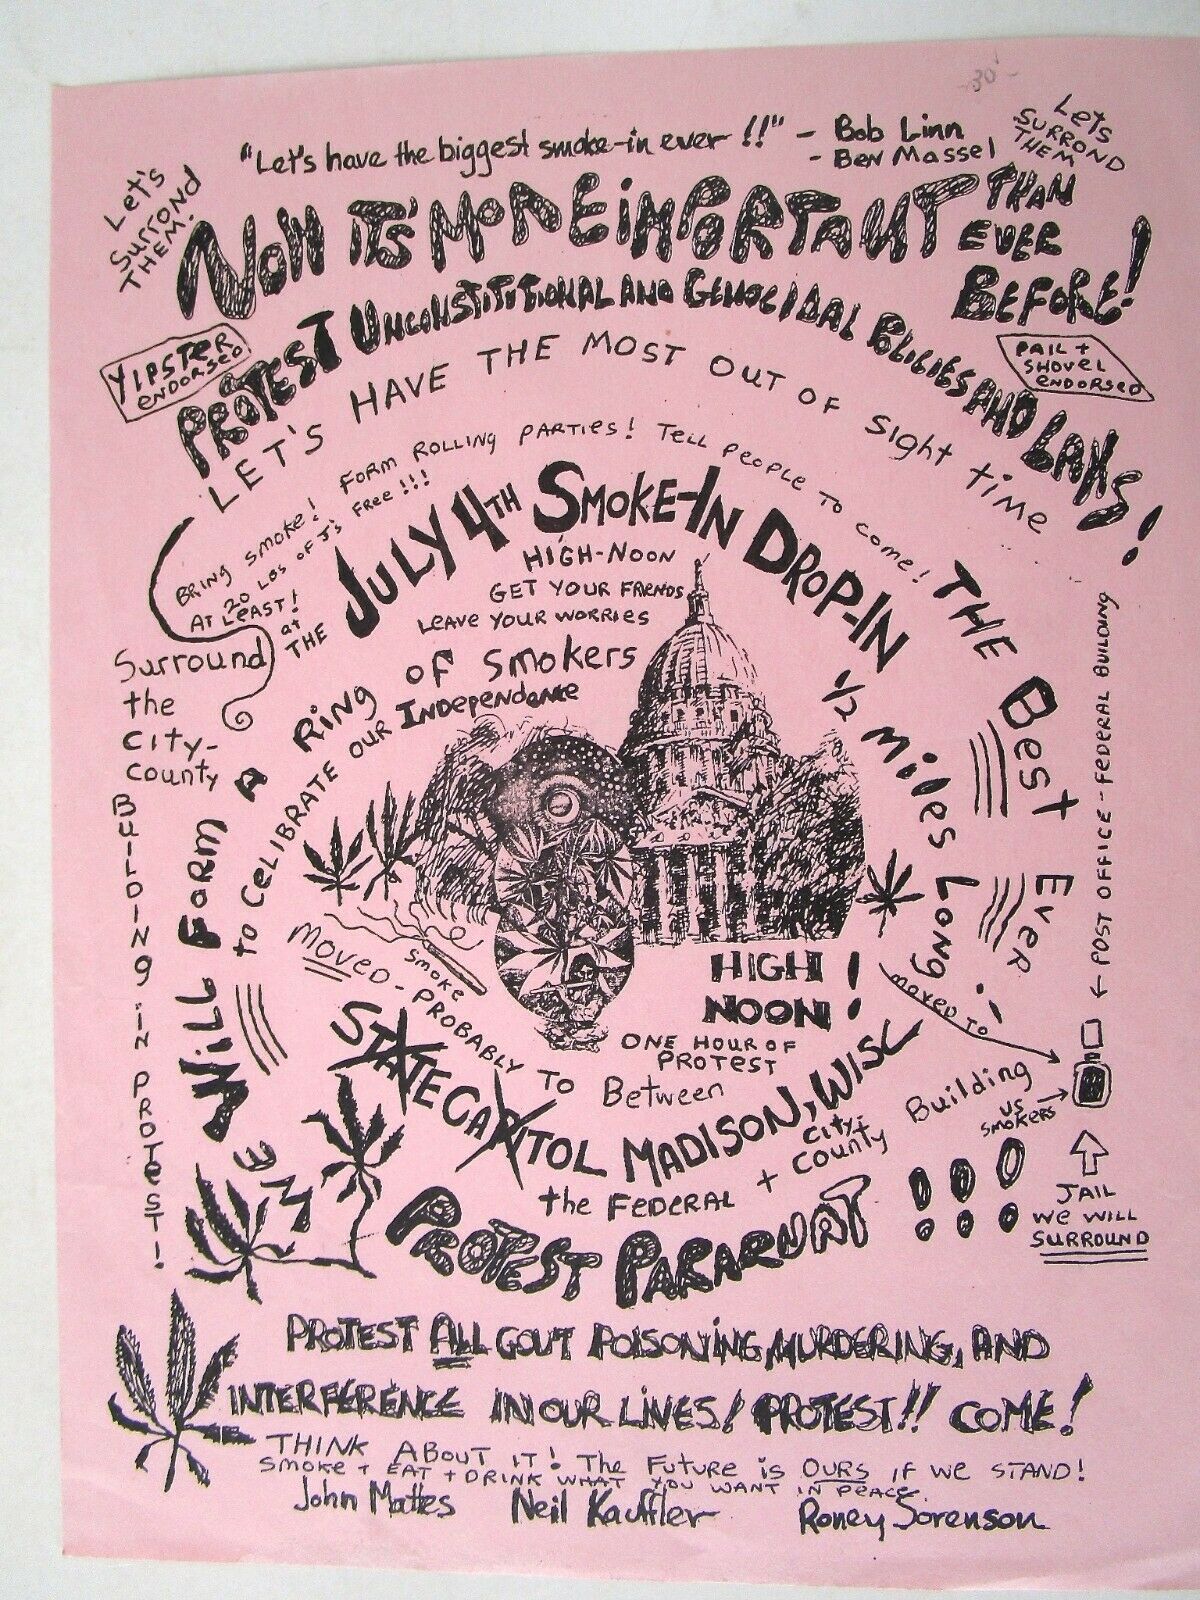 30
"Let's have the biggest smoke-in ever!!" - Bob Linn
- Ben Massel
Let's
Surrond
them.
Lets
Surrond
them
Now it's more important than
ever
before!
Protest Unconstitutional and Genocidal Policies and Laws!
Yipster
endorsed
Pail +
Shovel
endorsed
Let's have the most out of sight time
Bring smoke! Form rolling parties! Tell people to come!
At 20 Lbs of J's free!!!
at least!
at
the
July 4th Smoke-In Drop-In
The Best Ever!
High-Noon
Get your friends
Leave your worries
Surround
the
City-
County
Building in protest!
We Will Form a Ring of Smokers 1/2 miles long
to celibrate our Independance
smoke
High
Noon!
One hour of
protest
Moved - probably to Between
State Capitol Madison, Wisc
the Federal + City-
County Building
moved to
← Post Office - Federal Building
us
smokers
Jail
we will
surround
Protest Pararuat !!!
Protest All Gout Poisoning, Murdering, and
Interference in our lives! Protest!! Come!
Think about it! The Future is ours if we stand!
Smoke + eat + drink what you want in peace.
John Mattes Neil Kauffler Roney Sorenson